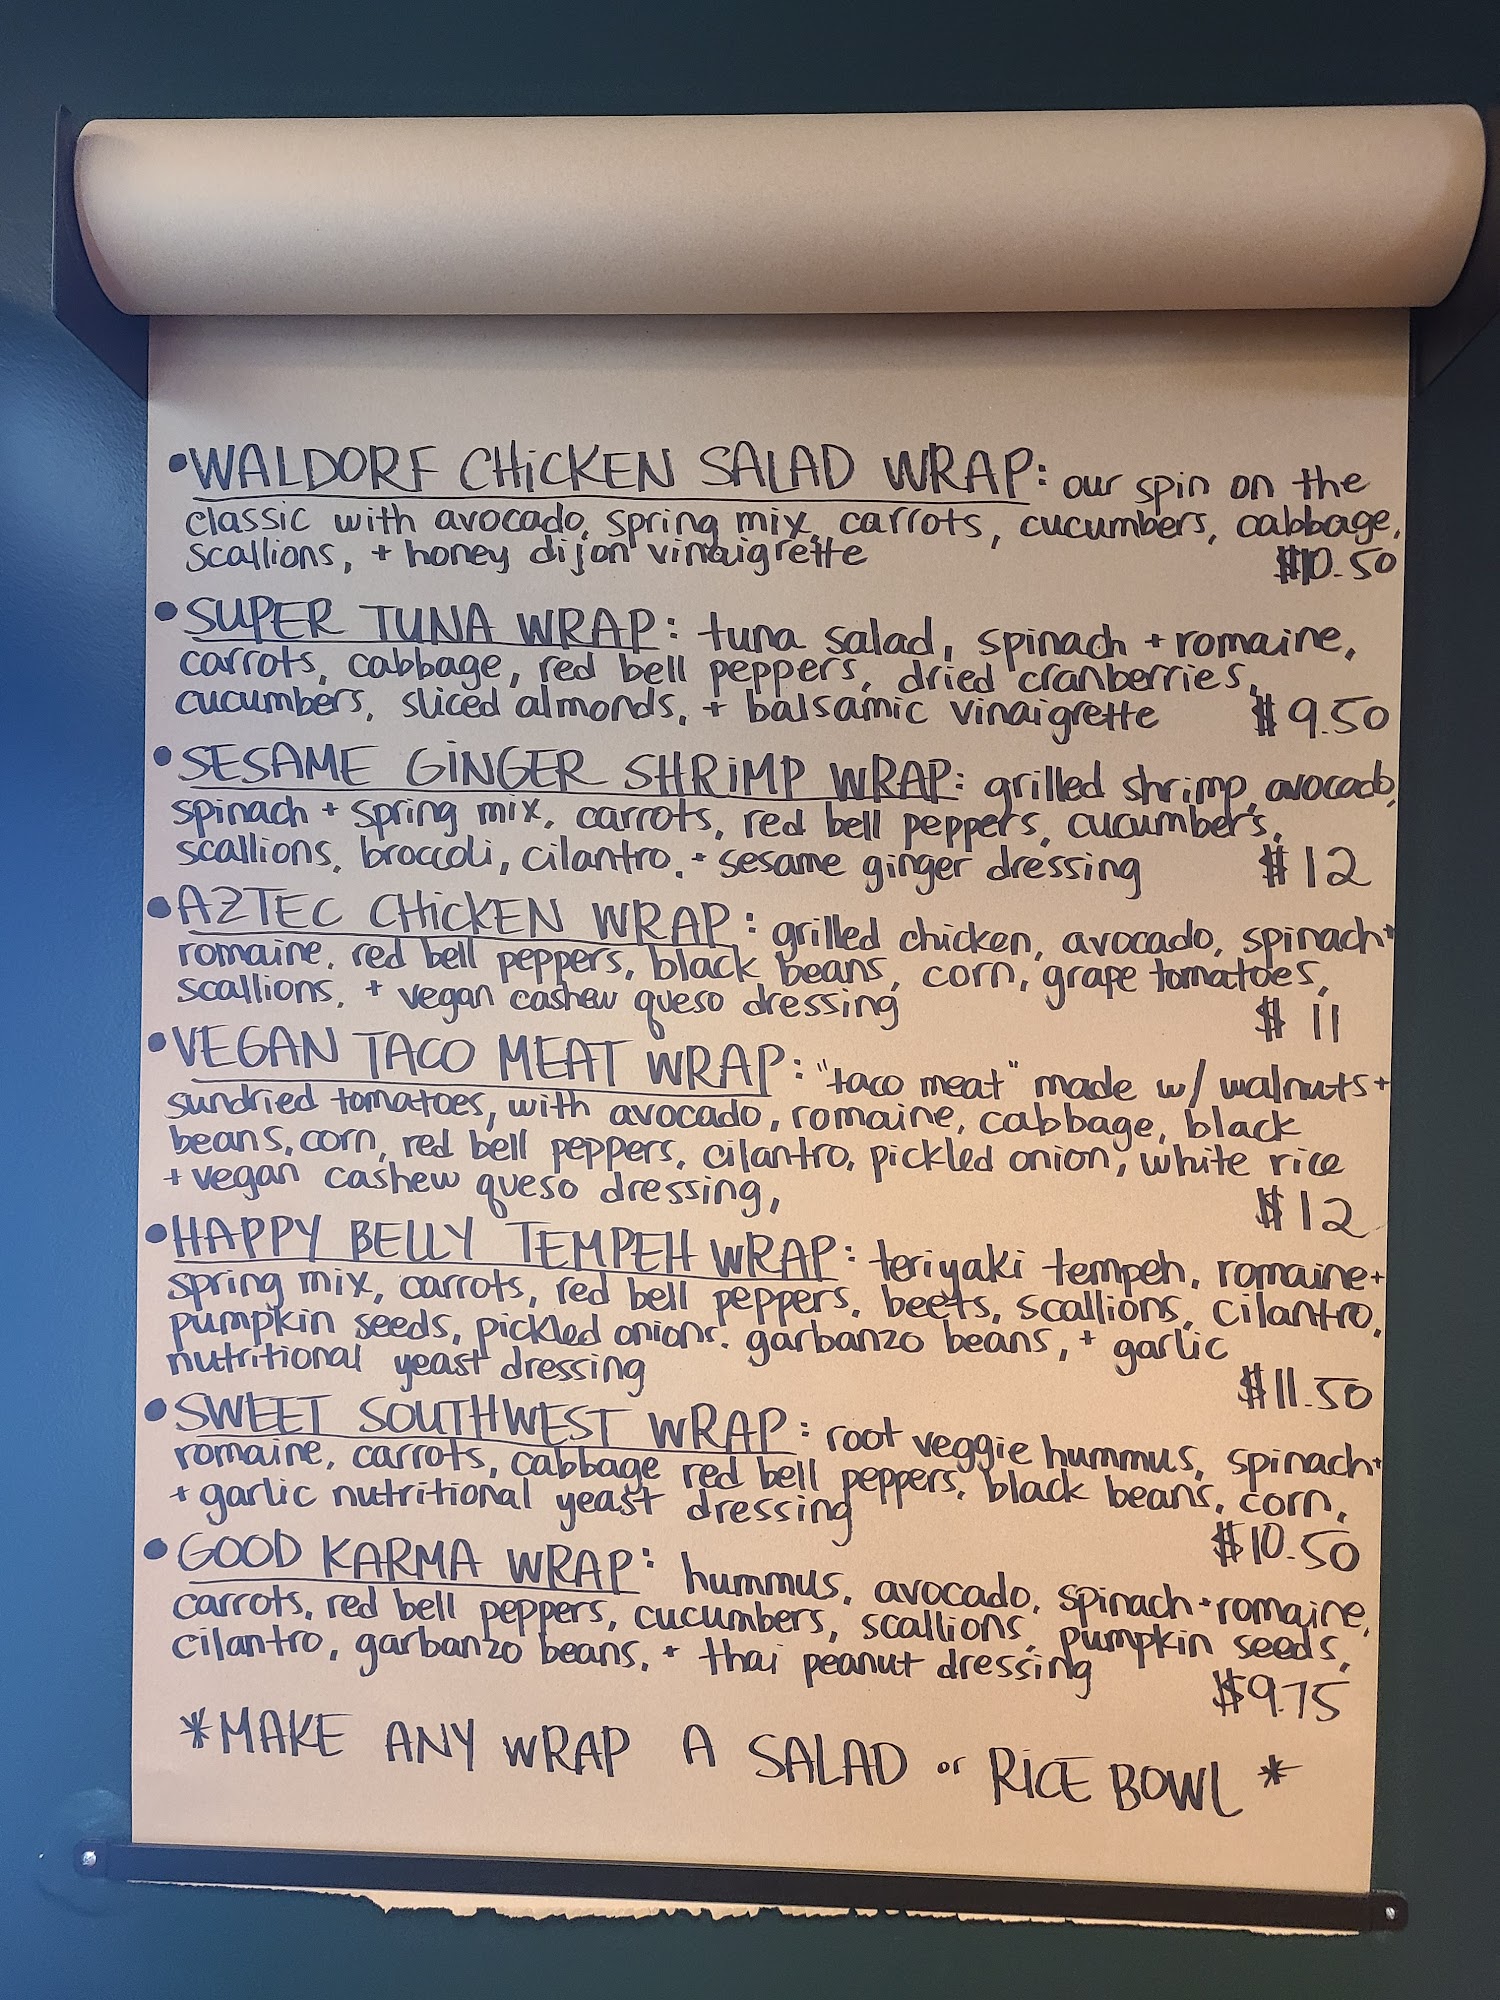 •WALDORF CHICKEN SALAD WRAP: our spin on the
classic with avocado, spring mix, carrots, cucumbers, cabbage,
scallions, + honey dijon vinaigrette $10.50
•SUPER TUNA WRAP: tuna salad, spinach + romaine,
carrots, cabbage, red bell peppers, dried cranberries,
cucumbers, sliced almonds, + balsamic vinaigrette $9.50
•SESAME GINGER SHRIMP WRAP: grilled shrimp, avocado,
spinach + spring mix, carrots, red bell peppers, cucumbers,
scallions, broccoli, cilantro, + sesame ginger dressing $12
•AZTEC CHICKEN WRAP: grilled chicken, avocado, spinach+
romaine, red bell peppers, black beans, corn, grape tomatoes,
scallions, + vegan cashew queso dressing $11
•VEGAN TACO MEAT WRAP: "taco meat" made w/ walnuts+
sundried tomatoes, with avocado, romaine, cabbage, black
beans, corn, red bell peppers, cilantro, pickled onion, white rice
+ vegan cashew queso dressing, $12
•HAPPY BELLY TEMPEH WRAP: teriyaki tempeh, romaine+
spring mix, carrots, red bell peppers, beets, scallions, cilantro,
pumpkin seeds, pickled onions, garbanzo beans, + garlic
nutritional yeast dressing $11.50
•SWEET SOUTHWEST WRAP: root veggie hummus, spinach+
romaine, carrots, cabbage red bell peppers, black beans, corn,
+ garlic nutritional yeast dressing $10.50
•GOOD KARMA WRAP: hummus, avocado, spinach+romaine,
carrots, red bell peppers, cucumbers, scallions, pumpkin seeds,
cilantro, garbanzo beans, + thai peanut dressing $9.75
*MAKE ANY WRAP A SALAD or RICE BOWL*